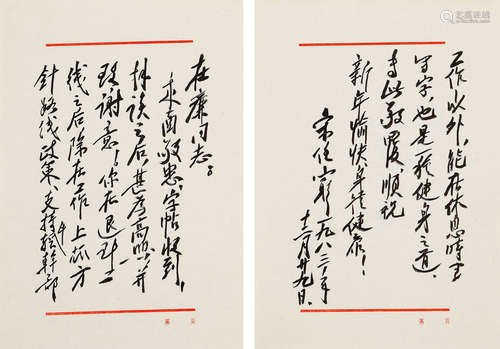 在廉同志。
来函敬悉、字帖收到,
拜读之后甚为高兴,并
致谢意!你在退到二
线之后除在工作上抓方
针路线政策、支持年轻幹部
第 页
工作以外,能在休息时
写字也是一种健身之道。
专此敬覆 顺祝
新年愉快身体健康!
宋任穷 一九八三年
十二月廿九日。
第 页